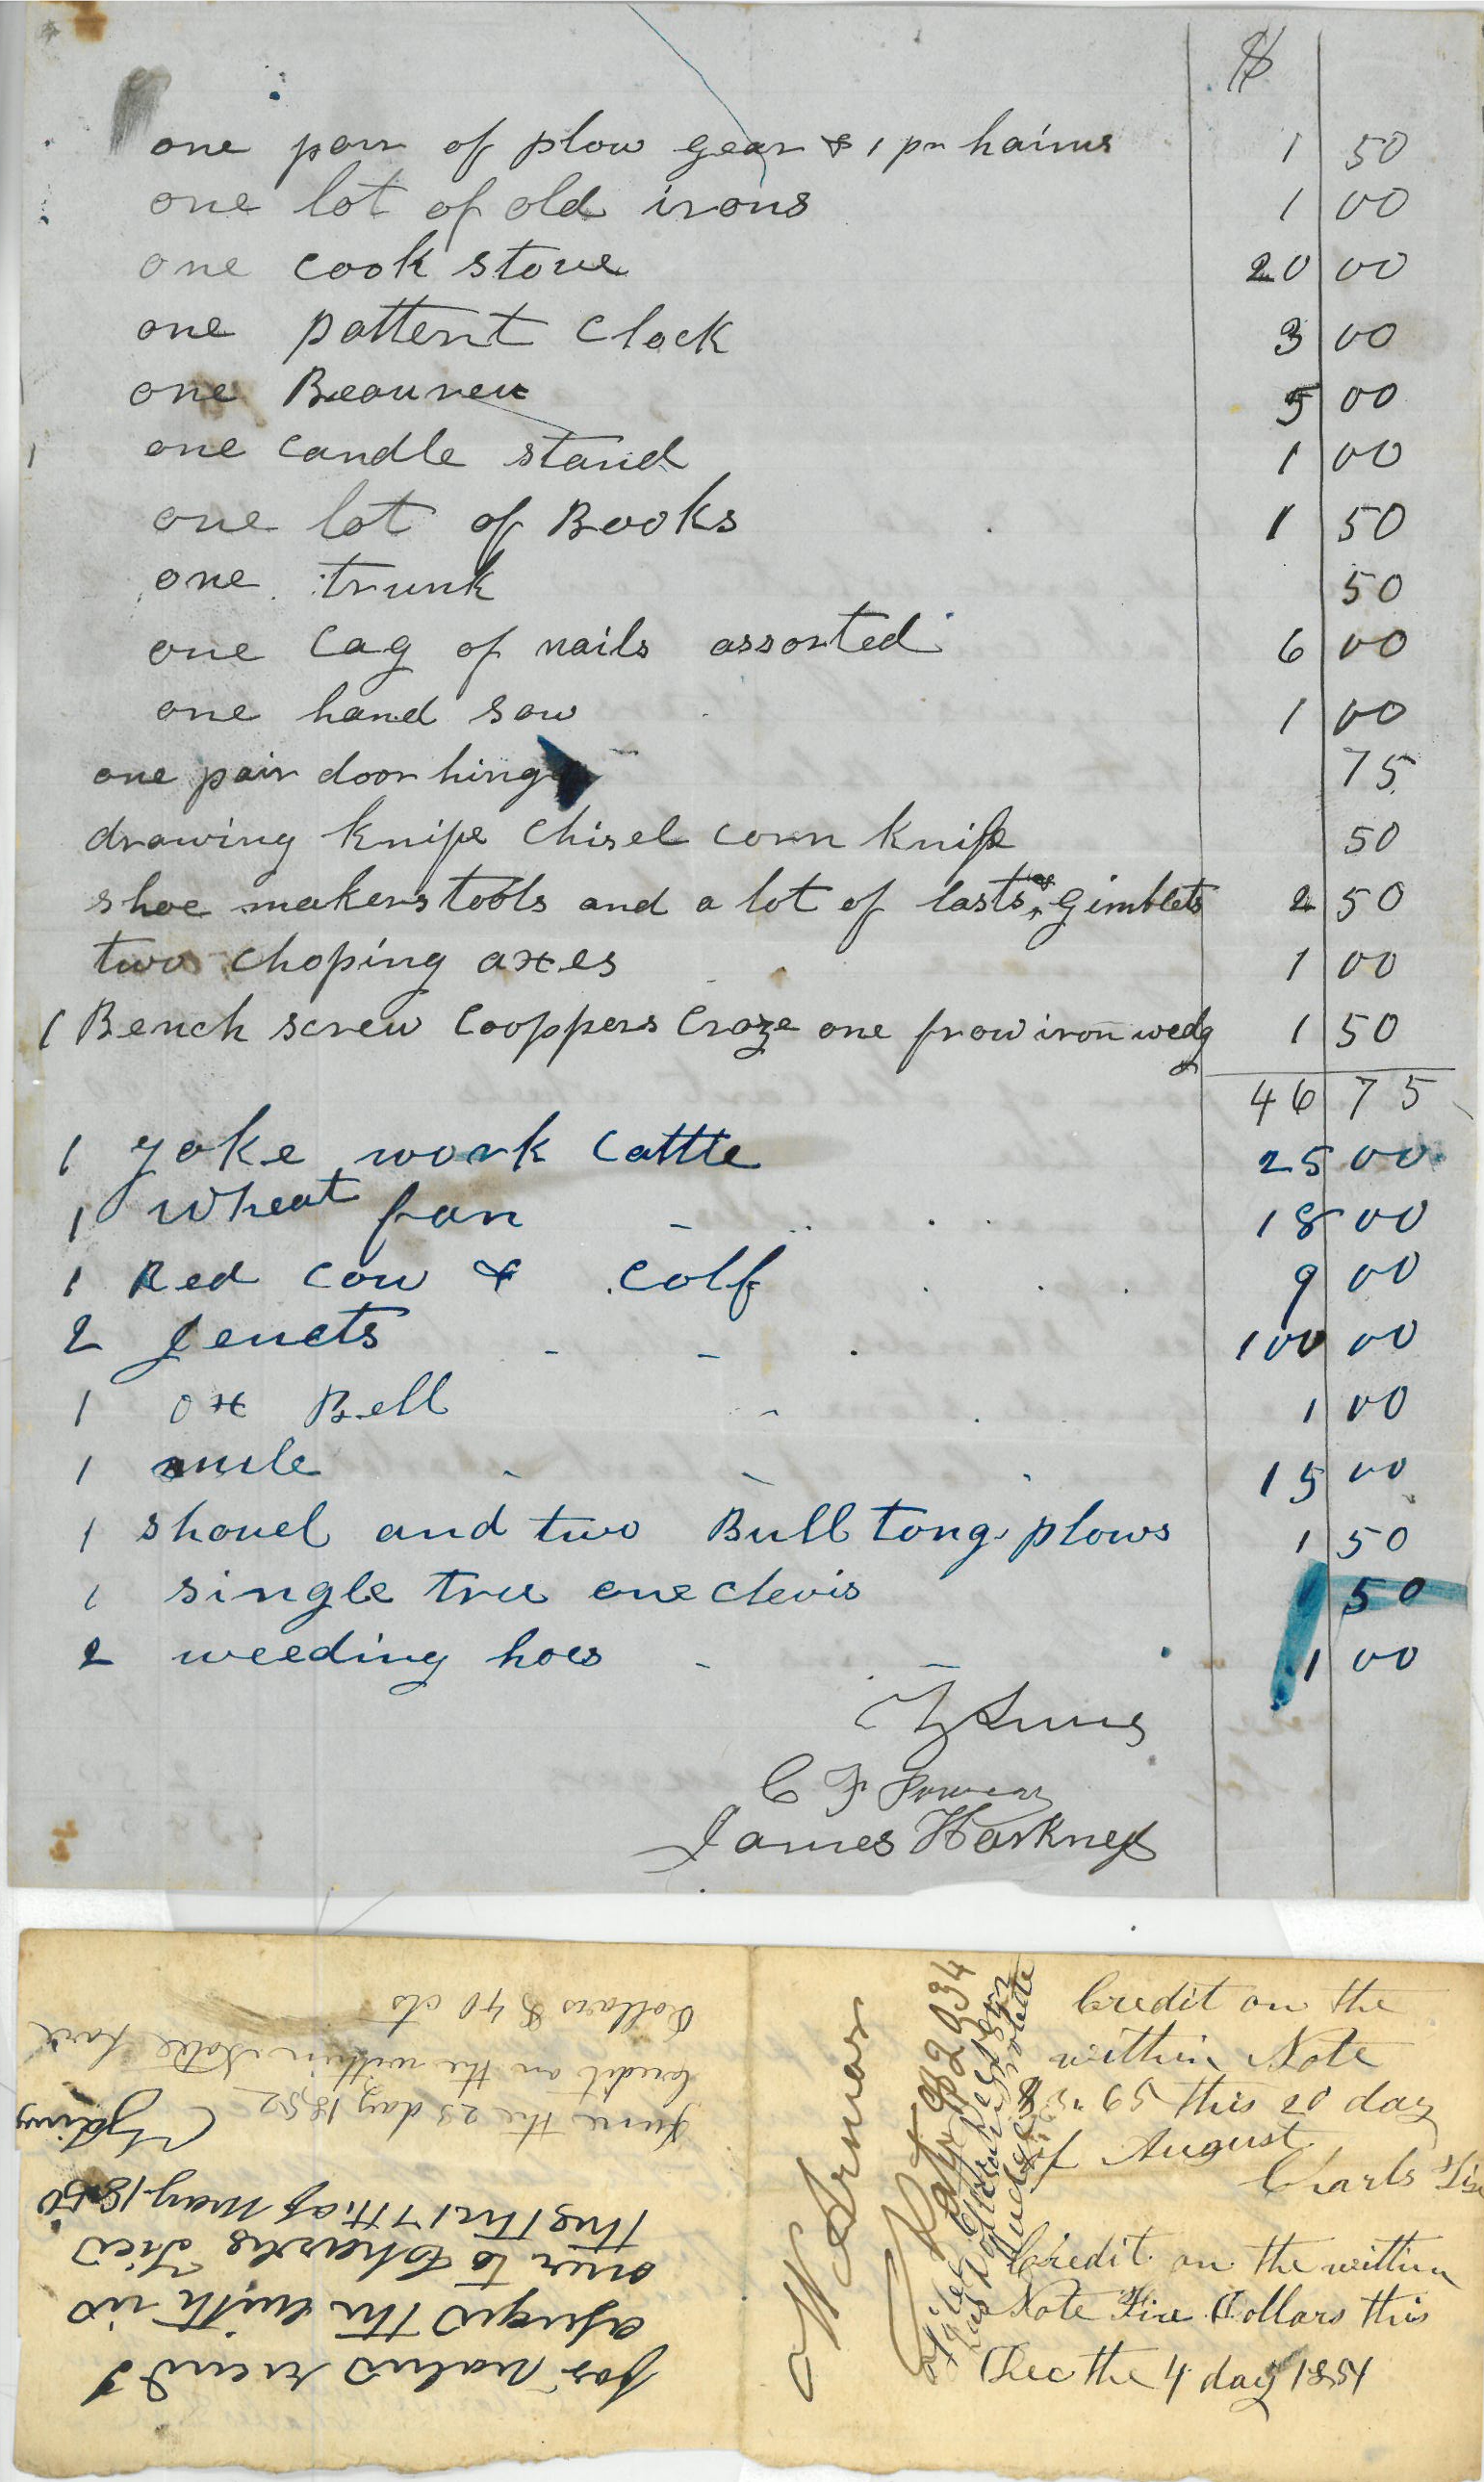 $
one pair of plow gear & 1 pr haims 1 50
one lot of old irons 1 00
one cook stove 20 00
one pattent clock 3 00
one Beaureu 5 00
one candle stand 1 00
one lot of Books 1 50
one trunk 50
one cag of nails assorted 6 00
one hand saw 1 00
one pair door hinges 75
drawing knife chisel corn knife 50
shoe makers tools and a lot of lasts & Gimblets 2 50
two choping axes 1 00
1 Bench screw Cooppers Croze one frow iron wedg 1 50
46 75
1 yoke work Cattle 25 00
1 Wheat fan 18 00
1 Red cow & colf 9 00
2 Jenets 100 00
1 ox Bell 1 00
1 mule 15 00
1 shovel and two Bull tong plows 1 50
1 single tree one clevis 50
2 weeding hoes 1 00
C F
James Harkness
for valus reciev I
asingd the with in
over to Charls Ties
this the 17th of May 1850
June the 23 day 1852
Credit on the within Note four
Dollars & 40 cts
Credit on the
within Note
65 this 20 day
of August
Charls
Credit on the within
Note Five Dollars this
Dec the 4 day 1854